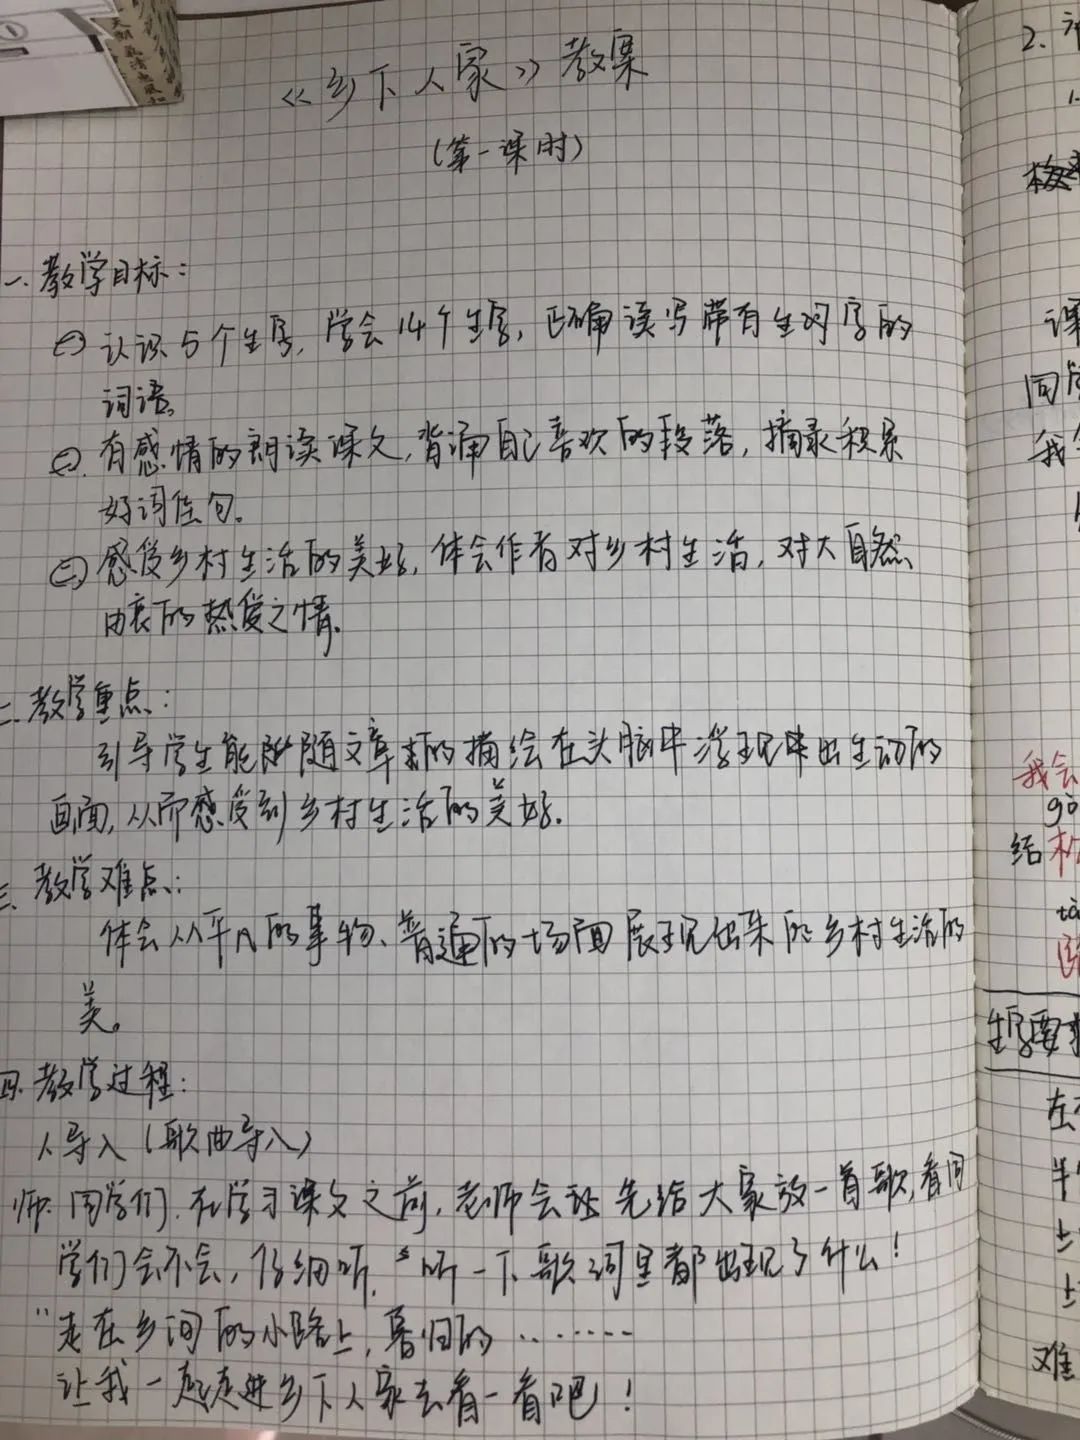 《乡下人家》教案
(第一课时)
一、教学目标:
㊀ 认识5个生字,学会14个生字,正确读写带有生词字的
词语。
㊁ 有感情的朗读课文,背诵自己喜欢的段落,摘录积累
好词佳句。
㊂ 感受乡村生活的美好,体会作者对乡村生活,对大自然
由衷的热爱之情。
二、教学重点:
引导学生能随文章的描绘在头脑中浮现出生动的
画面,从而感受到乡村生活的美好.
三、教学难点:
体会从平凡的事物、普通的场面展现出来的乡村生活的
美。
四、教学过程:
1、导入(歌曲导入)
师:同学们,在学习课文之前,老师会先给大家放一首歌,看同
学们会不会,仔细听,听一下歌词里都出现了什么!
"走在乡间的小路上,暮归的……
让我一起走进乡下人家去看一看吧!
2.
课
同学
我
我会
结
生字要
左
半
上
上
难